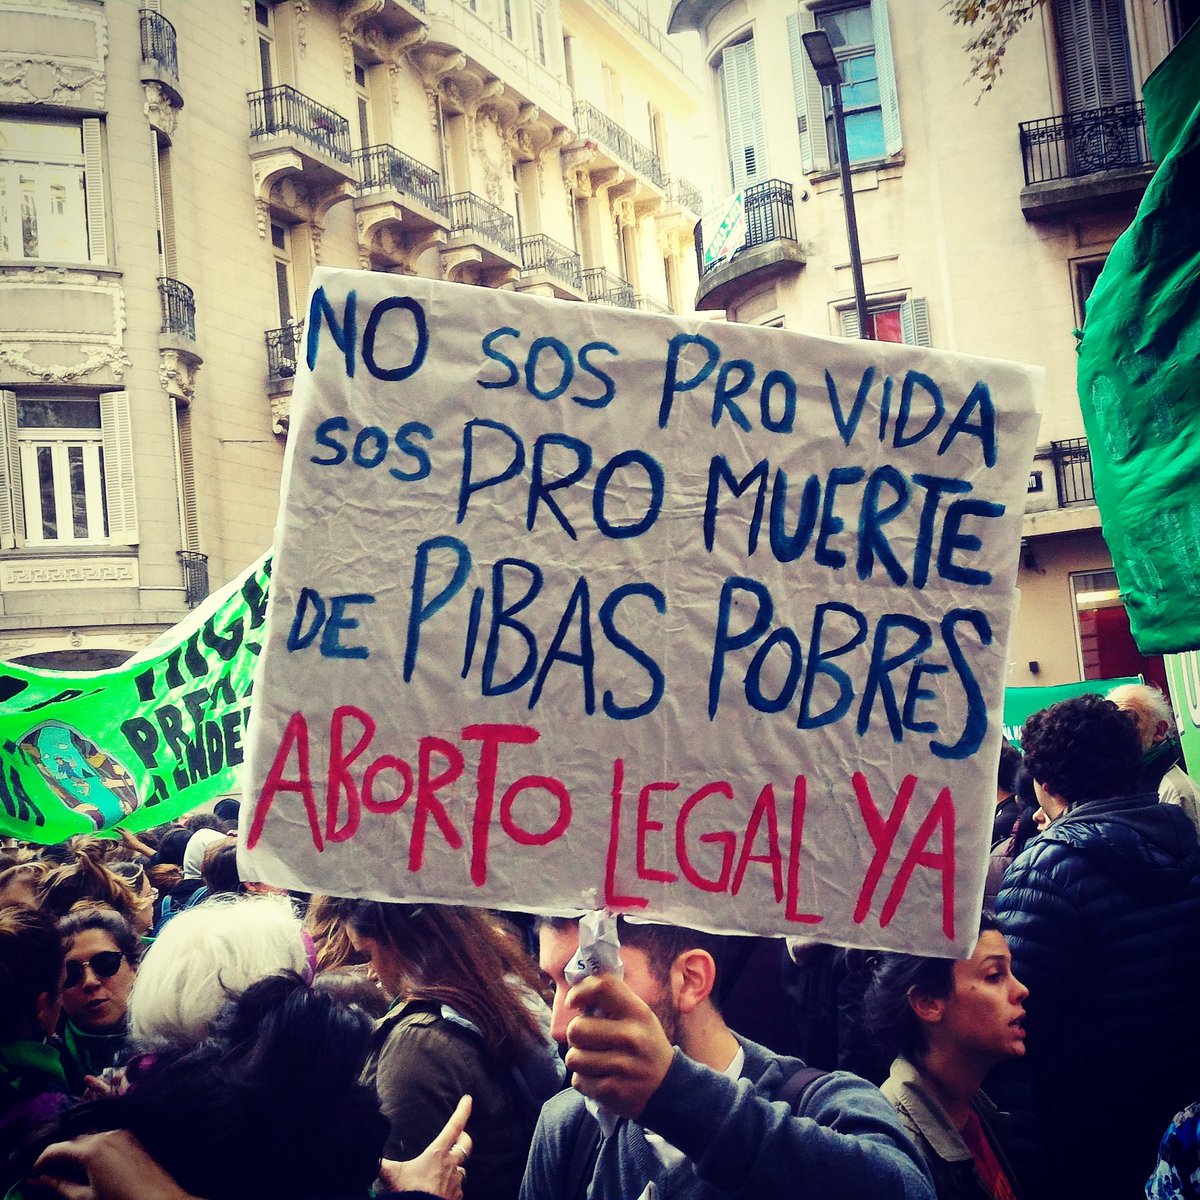 NO SOS PRO VIDA
SOS PRO MUERTE
DE PIBAS POBRES
ABORTO LEGAL YA